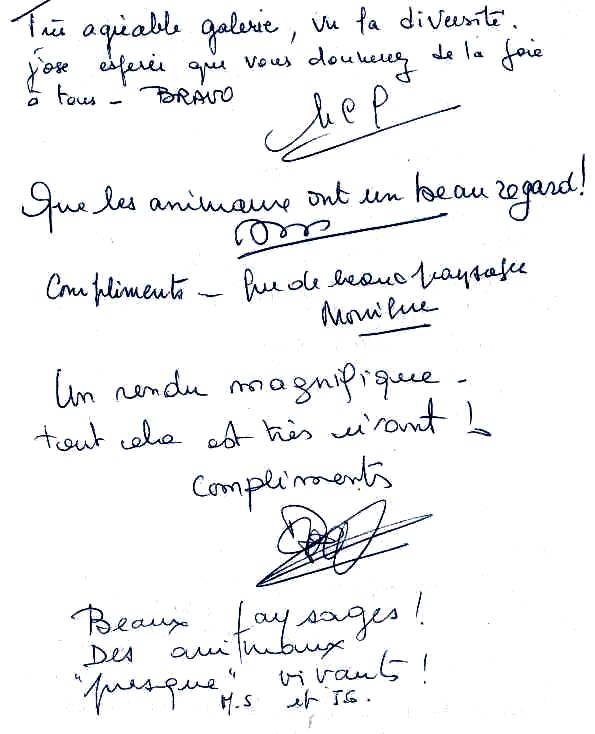 Très agréable galerie, vu la diversité.
j'ose espérer que vous donnerez de la joie
à tous - BRAVO
MCP
Que les animaux ont un beau regard!
Compliments - Que de beaux paysages
Monique
Un rendu magnifique -
tout cela est très vivant !
compliments
Beaux paysages!
Des animaux
"presque" vivants!
M.S et JG.